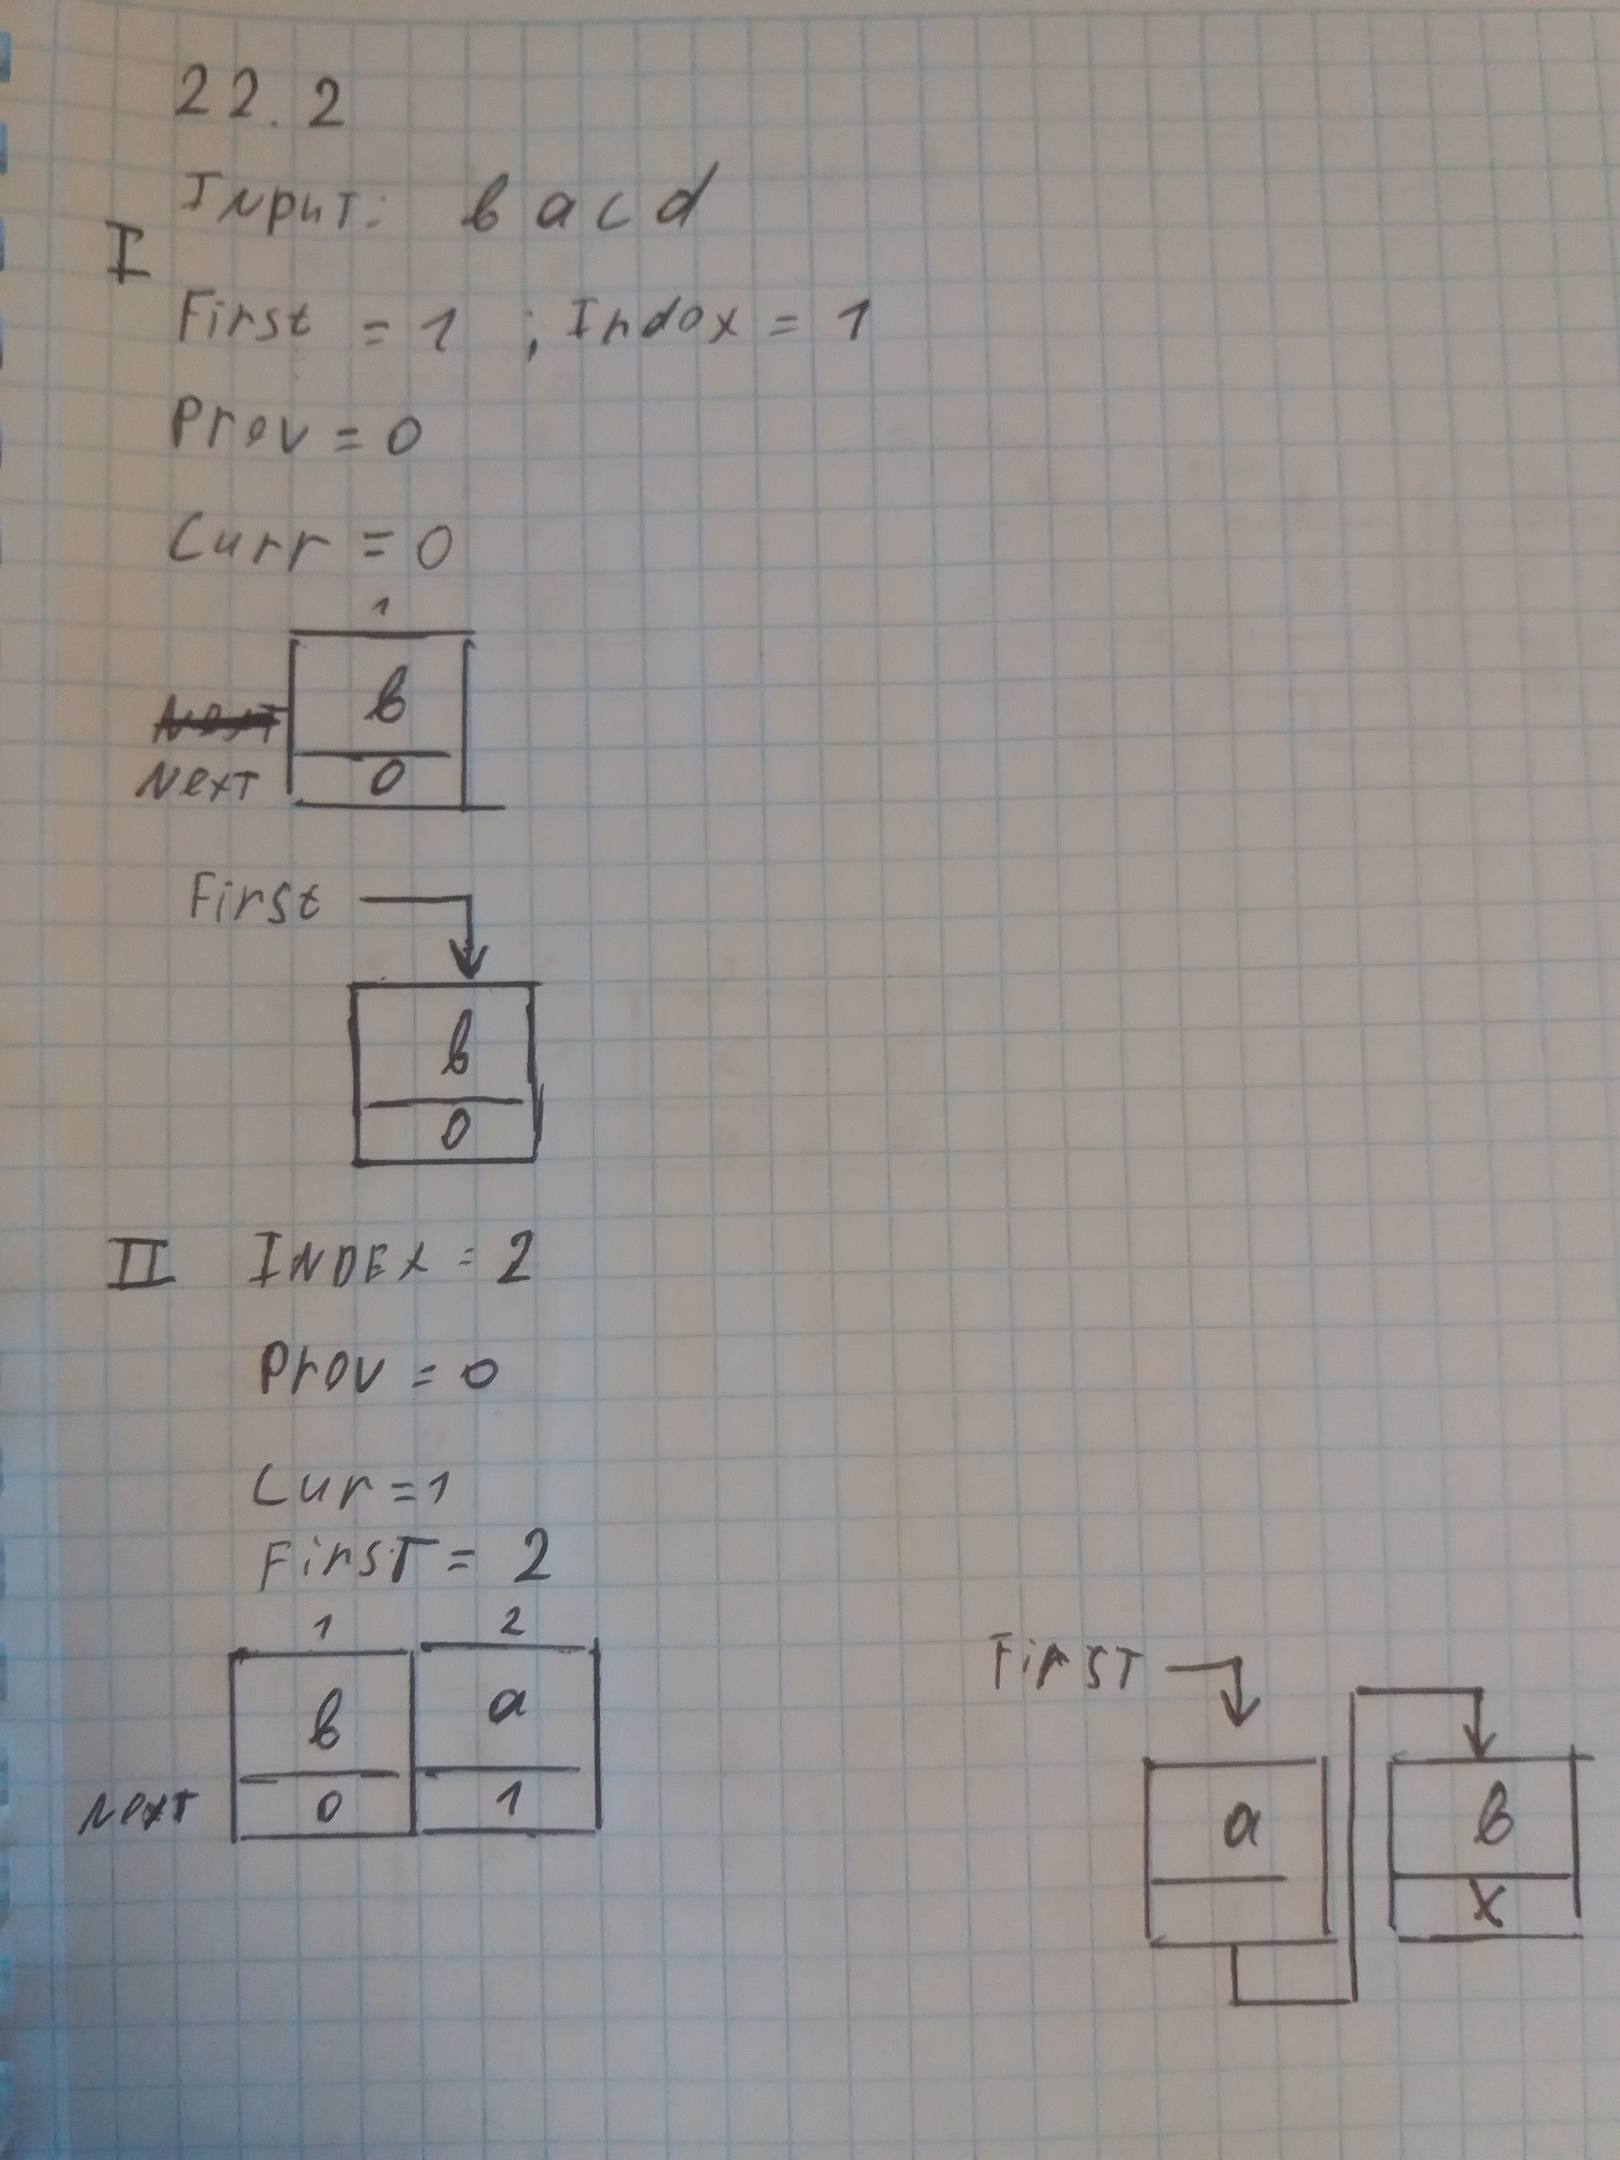 22.2
Input: b a c d
I
First = 1 ; Index = 1
Prev = 0
Curr = 0
1
b
Next 0
First
b
0
II INDEX = 2
Prev = 0
Cur = 1
FirsT = 2
1 2
b a
Next 0 1
FiRST
a b
X